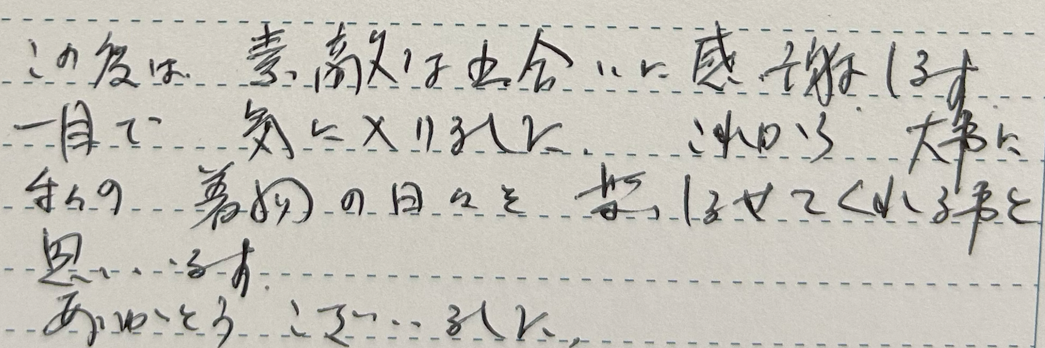 この度は 素敵な出会いに感謝します
一目で 気に入りました。これから 大事に
私の 着物の日々を 楽しませてくれる事と
思います。
ありがとうございました。